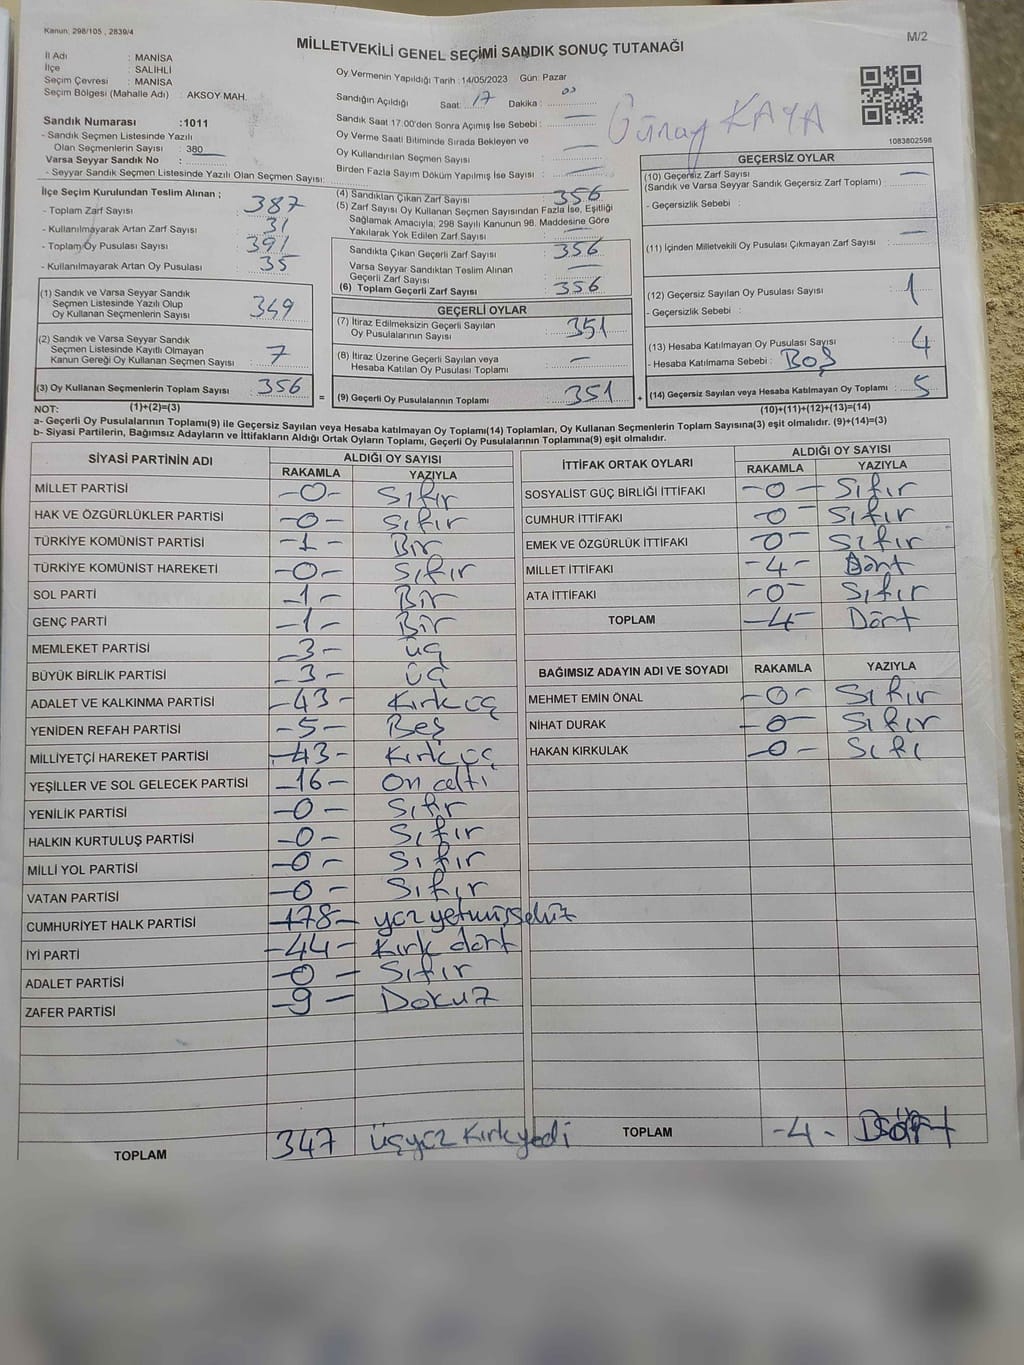 Kanun: 298/105 , 2839/4
M/2
MİLLETVEKİLİ GENEL SEÇİMİ SANDIK SONUÇ TUTANAĞI
İl Adı : MANİSA
İlçe : SALİHLİ
Seçim Çevresi : MANİSA
Seçim Bölgesi (Mahalle Adı) : AKSOY MAH.
Sandık Numarası :1011
- Sandık Seçmen Listesinde Yazılı
Olan Seçmenlerin Sayısı : 380
Varsa Seyyar Sandık No :
- Seyyar Sandık Seçmen Listesinde Yazılı Olan Seçmen Sayısı:
Oy Vermenin Yapıldığı Tarih : 14/05/2023 Gün: Pazar
Sandığın Açıldığı Saat: 17 Dakika : 00
Sandık Saat 17.00'den Sonra Açımış İse Sebebi : —
Oy Verme Saati Bitiminde Sırada Bekleyen ve
Oy Kullandırılan Seçmen Sayısı : —
Birden Fazla Sayım Döküm Yapılmış İse Sayısı : —
Günay KAYA
1083802598
İlçe Seçim Kurulundan Teslim Alınan ;
- Toplam Zarf Sayısı : 387
- Kullanılmayarak Artan Zarf Sayısı : 31
- Toplam Oy Pusulası Sayısı : 391
- Kullanılmayarak Artan Oy Pusulası : 35
(1) Sandık ve Varsa Seyyar Sandık
Seçmen Listesinde Yazılı Olup
Oy Kullanan Seçmenlerin Sayısı : 349
(2) Sandık ve Varsa Seyyar Sandık
Seçmen Listesinde Kayıtlı Olmayan
Kanun Gereği Oy Kullanan Seçmen Sayısı : 7
(3) Oy Kullanan Seçmenlerin Toplam Sayısı : 356
(4) Sandıktan Çıkan Zarf Sayısı : 356
(5) Zarf Sayısı Oy Kullanan Seçmen Sayısından Fazla İse, Eşitliği
Sağlamak Amacıyla, 298 Sayılı Kanunun 98. Maddesine Göre
Yakılarak Yok Edilen Zarf Sayısı : —
Sandıkta Çıkan Geçerli Zarf Sayısı : 356
Varsa Seyyar Sandıktan Teslim Alınan
Geçerli Zarf Sayısı : —
(6) Toplam Geçerli Zarf Sayısı : 356
GEÇERLİ OYLAR
(7) İtiraz Edilmeksizin Geçerli Sayılan
Oy Pusulalarının Sayısı : 351
(8) İtiraz Üzerine Geçerli Sayılan veya
Hesaba Katılan Oy Pusulası Toplamı : —
= (9) Geçerli Oy Pusulalarının Toplamı : 351
GEÇERSİZ OYLAR
(10) Geçersiz Zarf Sayısı
(Sandık ve Varsa Seyyar Sandık Geçersiz Zarf Toplamı) : —
- Geçersizlik Sebebi :
(11) İçinden Milletvekili Oy Pusulası Çıkmayan Zarf Sayısı : —
(12) Geçersiz Sayılan Oy Pusulası Sayısı : 1
- Geçersizlik Sebebi :
(13) Hesaba Katılmayan Oy Pusulası Sayısı : 4
- Hesaba Katılmama Sebebi : BOŞ
+ (14) Geçersiz Sayılan veya Hesaba Katılmayan Oy Toplamı : 5
NOT: (1)+(2)=(3) (10)+(11)+(12)+(13)=(14)
a- Geçerli Oy Pusulalarının Toplamı(9) ile Geçersiz Sayılan veya Hesaba katılmayan Oy Toplamı(14) Toplamları, Oy Kullanan Seçmenlerin Toplam Sayısına(3) eşit olmalıdır. (9)+(14)=(3)
b- Siyasi Partilerin, Bağımsız Adayların ve İttifakların Aldığı Ortak Oyların Toplamı, Geçerli Oy Pusulalarının Toplamına(9) eşit olmalıdır.
SİYASİ PARTİNİN ADI ALDIĞI OY SAYISI
RAKAMLA YAZIYLA
MİLLET PARTİSİ -0- Sıfır
HAK VE ÖZGÜRLÜKLER PARTİSİ -0- Sıfır
TÜRKİYE KOMÜNİST PARTİSİ -1- Bir
TÜRKİYE KOMÜNİST HAREKETİ -0- Sıfır
SOL PARTİ -1- Bir
GENÇ PARTİ -1- Bir
MEMLEKET PARTİSİ -3- üç
BÜYÜK BİRLİK PARTİSİ -3- üç
ADALET VE KALKINMA PARTİSİ -43- Kırk üç
YENİDEN REFAH PARTİSİ -5- Beş
MİLLİYETÇİ HAREKET PARTİSİ -43- Kırk üç
YEŞİLLER VE SOL GELECEK PARTİSİ -16- On altı
YENİLİK PARTİSİ -0- Sıfır
HALKIN KURTULUŞ PARTİSİ -0- Sıfır
MİLLİ YOL PARTİSİ -0- Sıfır
VATAN PARTİSİ -0- Sıfır
CUMHURİYET HALK PARTİSİ -178- yüz yetmişsekiz
İYİ PARTİ -44- Kırk dört
ADALET PARTİSİ -0- Sıfır
ZAFER PARTİSİ -9- Dokuz
TOPLAM 347 üçyüz Kırkyedi
İTTİFAK ORTAK OYLARI ALDIĞI OY SAYISI
RAKAMLA YAZIYLA
SOSYALİST GÜÇ BİRLİĞİ İTTİFAKI -0- Sıfır
CUMHUR İTTİFAKI -0- Sıfır
EMEK VE ÖZGÜRLÜK İTTİFAKI -0- Sıfır
MİLLET İTTİFAKI -4- Dört
ATA İTTİFAKI -0- Sıfır
TOPLAM -4- Dört
BAĞIMSIZ ADAYIN ADI VE SOYADI RAKAMLA YAZIYLA
MEHMET EMİN ÖNAL -0- Sıfır
NİHAT DURAK -0- Sıfır
HAKAN KIRKULAK -0- Sıfı
TOPLAM -4- Dört